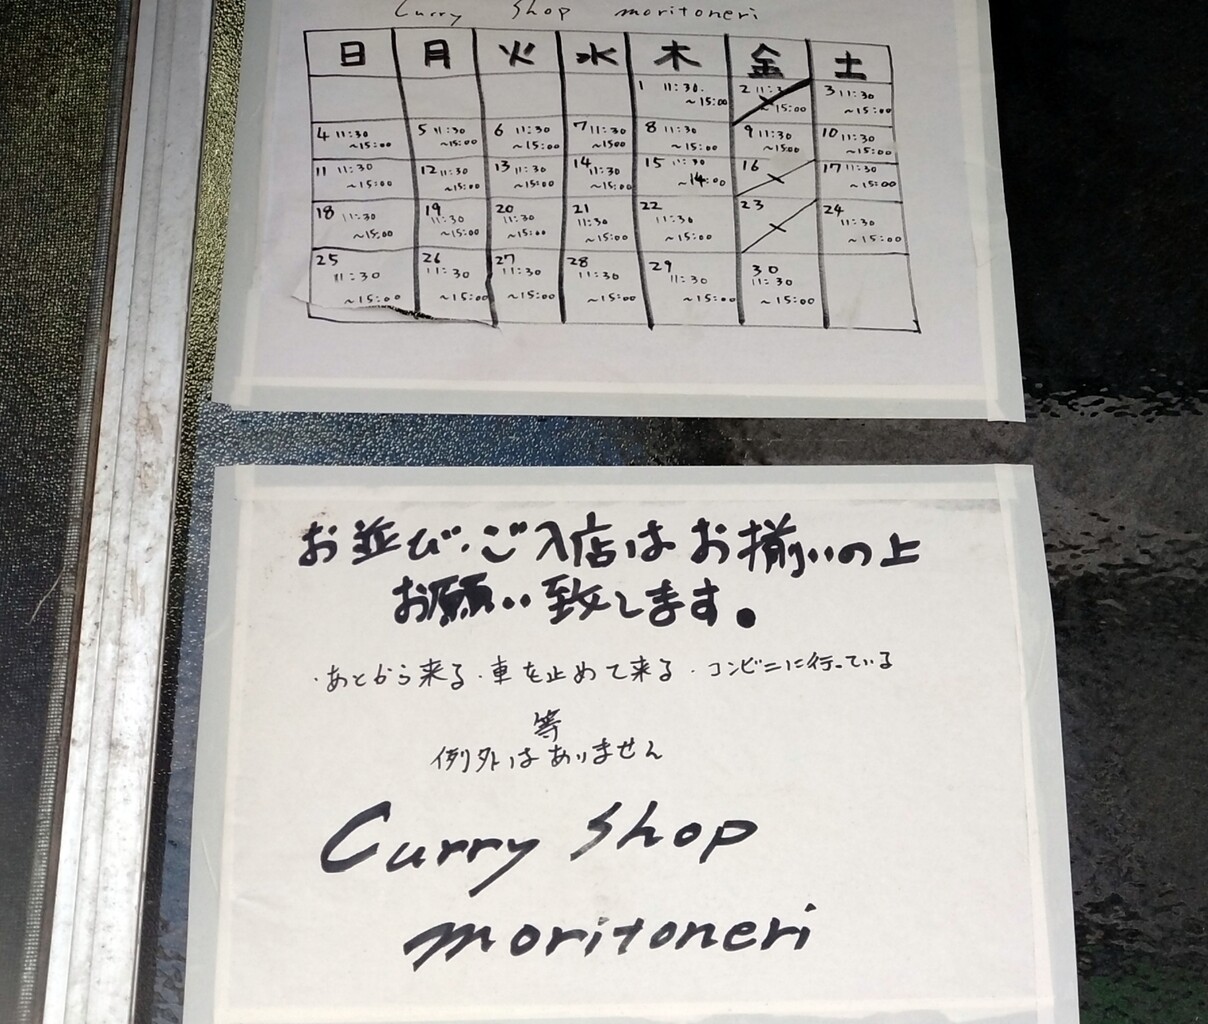 Curry Shop moritoneri
日 月 火 水 木 金 土
1 11:30. ~15:00 2 11:3 ~15:00 3 11:30 ~15:00
4 11:30 ~15:00 5 11:30 ~15:00 6 11:30 ~15:00 7 11:30 ~15:00 8 11:30 ~15:00 9 11:30 ~15:00 10 11:30 ~15:00
11 11:30 ~15:00 12 11:30 ~15:00 13 11:30 ~15:00 14 11:30 ~15:00 15 11:30 ~14:00 16 17 11:30 ~15:00
18 11:30 ~15:00 19 11:30 ~15:00 20 11:30 ~15:00 21 11:30 ~15:00 22 11:30 ~15:00 23 24 11:30 ~15:00
25 11:30 ~15:00 26 11:30 ~15:00 27 11:30 ~15:00 28 11:30 ~15:00 29 11:30 ~15:00 30 11:30 ~15:00
お並び・ご入店はお揃いの上
お願い致します。
・あとから来る・車を止めて来る・コンビニに行っている
等
例外はありません
Curry Shop
moritoneri